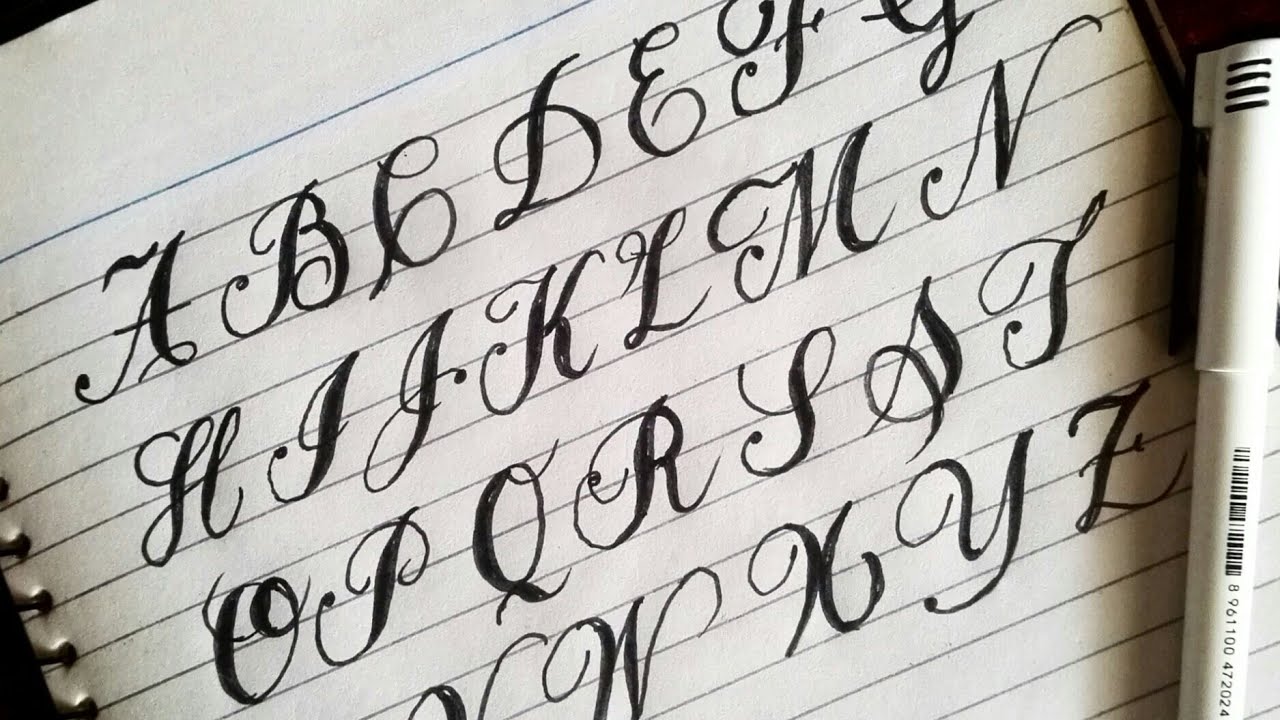 A B C D E F G
H I J K L M N
O P Q R S S T
V W X Y Z
8 961100 472024